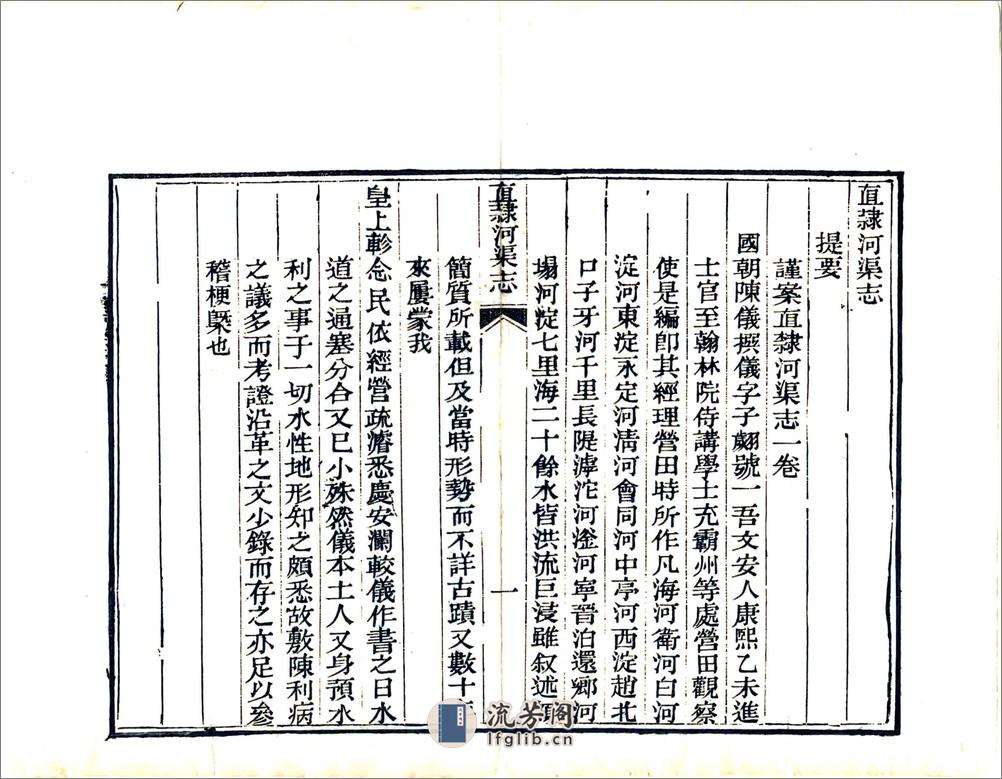 直隸河渠志
提要
謹案直隸河渠志一卷
國朝陳儀撰儀字子翽號一吾文安人康熙乙未進
士官至翰林院侍講學士充霸州等處營田觀察
使是編卽其經理營田時所作凡海河衛河白河
淀河東淀永定河清河會同河中亭河西淀趙北
口子牙河千里長隄滹沱河滏河寧晉泊還鄉河
塌河淀七里海二十餘水皆洪流巨浸雖叙述頗
直隸河渠志
一
簡質所載但及當時形勢而不詳古蹟又數十年
來屢蒙我
皇上軫念民依經營疏濬悉慶安瀾較儀作書之日水
道之通塞分合又已小殊然儀本土人又身預水
利之事于一切水性地形知之頗悉故敷陳利病
之議多而考證沿革之文少錄而存之亦足以參
稽梗槩也
流芳閣
lfglib.cn